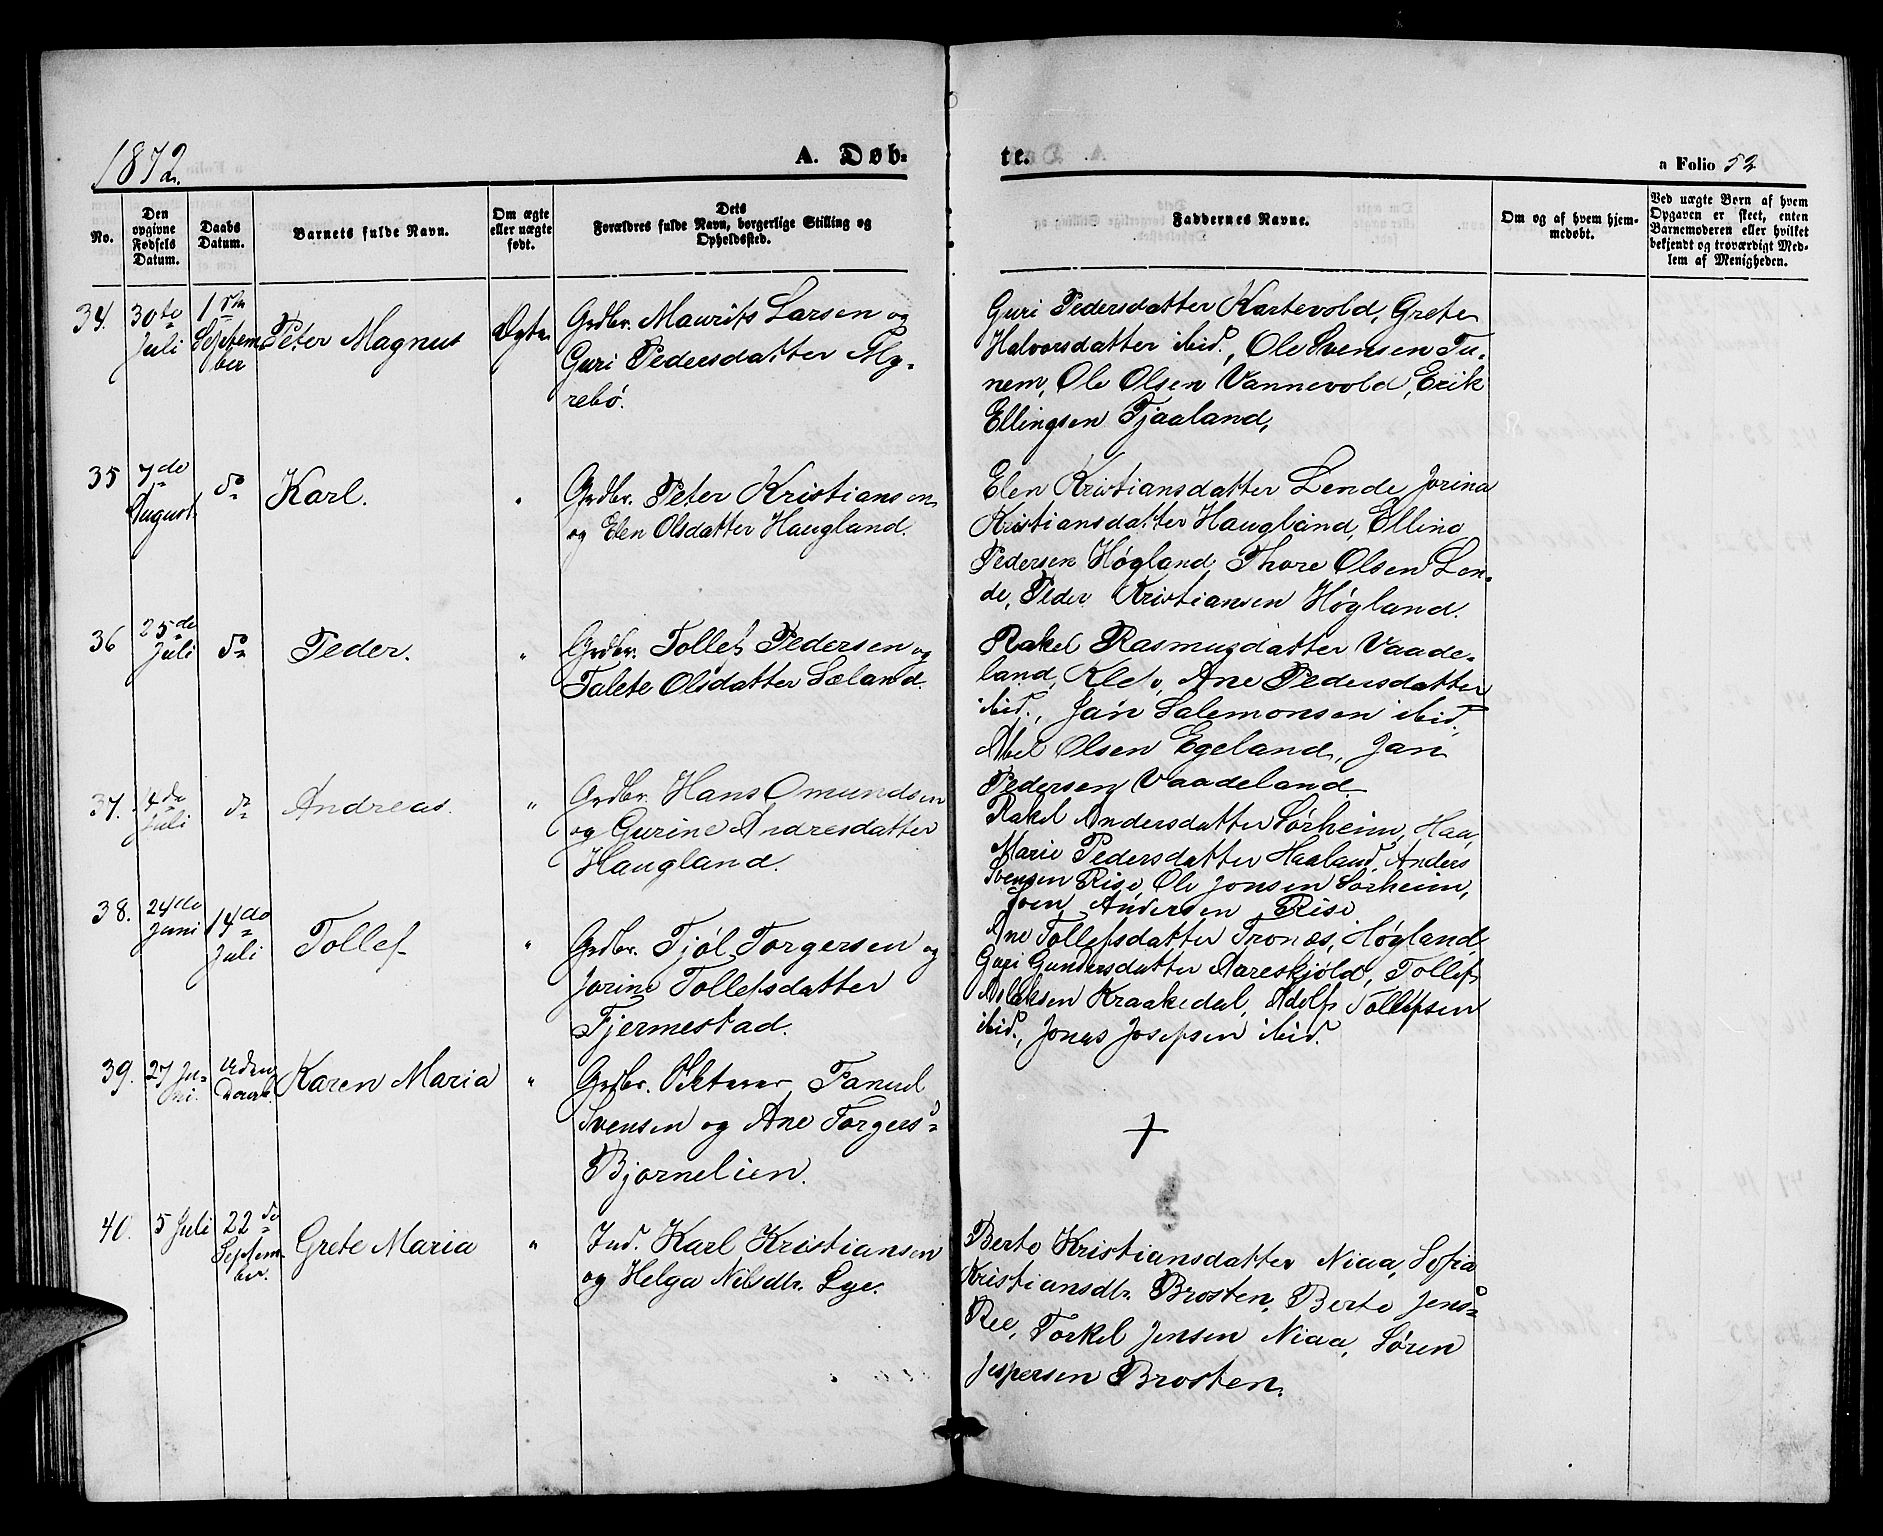 1872.
A. Døb-
te.
a Folio 52
No.
Den
opgivne
Fødsels
Datum.
Daabs
Datum.
Barnets fulde Navn.
Om ægte
eller uægte
født.
Dets
Forældres fulde Navn, borgerlige Stilling og
Opholdssted.
Faddernes Navne.
Om og af hvem hjem-
medøbt.
Ved uægte Børn af hvem
Opgaven er skeet, enten
Barnemoderen eller hvilket
bekjendt og troværdigt Med-
lem af Menigheden.
34.
30te
Juli
1ste
Septem-
ber
Peter Magnus
Ægte
Grdbr. Maurits Larsen og
Guri Pedersdatter My-
rebø.
Guri Pedersdatter Kartevold, Grete
Halvorsdatter ibid., Ole Svensen Tu-
nem, Ole Olsen Vannevold, Erik
Ellingsen Tjaaland,
35
7de
August.
do
Karl.
"
Grdbr. Peter Kristiansen
og Elen Olsdatter Haugland.
Elen Kristiansdatter Lende Jorina
Kristiansdatter Haugland, Elling
Pedersen Høgland, Thore Olsen Len-
de, Peder Kristiansen Høgland.
36
25de
Juli
do
Peder.
"
Grdbr. Tollef Pedersen og
Talete Olsdatter Sæland.
Rakel Rasmusdatter Vaade-
land, Klev, Ane Pedersdatter
ibid., Jan Salemonsen ibid.,
Abel Olsen Egeland, Jan
Pedersen Vaadeland.
37.
14de
Juli
do
Andreas.
"
Grdbr. Hans Omundsen
og Gurine Andresdatter
Haugland.
Rakel Andersdatter Sørheim, Haa,
Marie Pedersdatter Haaland, Anders
Svensen Rise, Ole Jonsen Sørheim,
Sven Andersen Rise
38.
24de
Juni
14de
Juli
Tollef
"
Grdbr. Tjøl Torgersen og
Jorine Tollefsdatter
Fjermestad.
Ane Tollefsdatter Tronæs, Høgland,
Guri Gundersdatter Aareskjold, Tollef
Aslaksen Kraakedal, Adolf Tollefsen
ibid., Jonas Josefsen ibid.
39.
27 Ju-
ni.
Uden
Daab.
Karen Maria
"
Grdbr. Oktavar Fanuel
Svensen og Ane Torgersd
Bjørnelien.
+
40.
5 Juli
22de
Septem-
ber.
Grete Maria
"
Ind. Karl Kristiansen
og Helga Nilsdtr. Lye.
Berte Kristiansdatter Niaa, Sofia
Kristiansdtr. Brosten, Berte Jensd
Ree, Torkel Jensen Niaa, Søren
Jespersen Brosten.